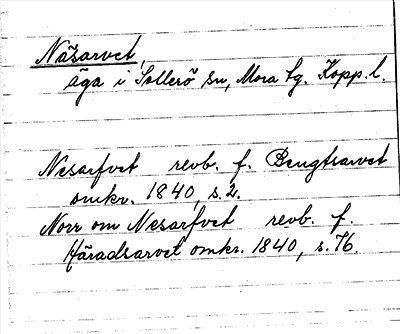 Näsarvet,
äga i Sollerö sn, Mora tg. Kopp. l.
Nesarfvet revb. f. Bengtsarvet
omkr. 1840, s. 2.
Norr om Nesarfvet revb. f.
Häradsarvet omkr. 1840, s. 76.